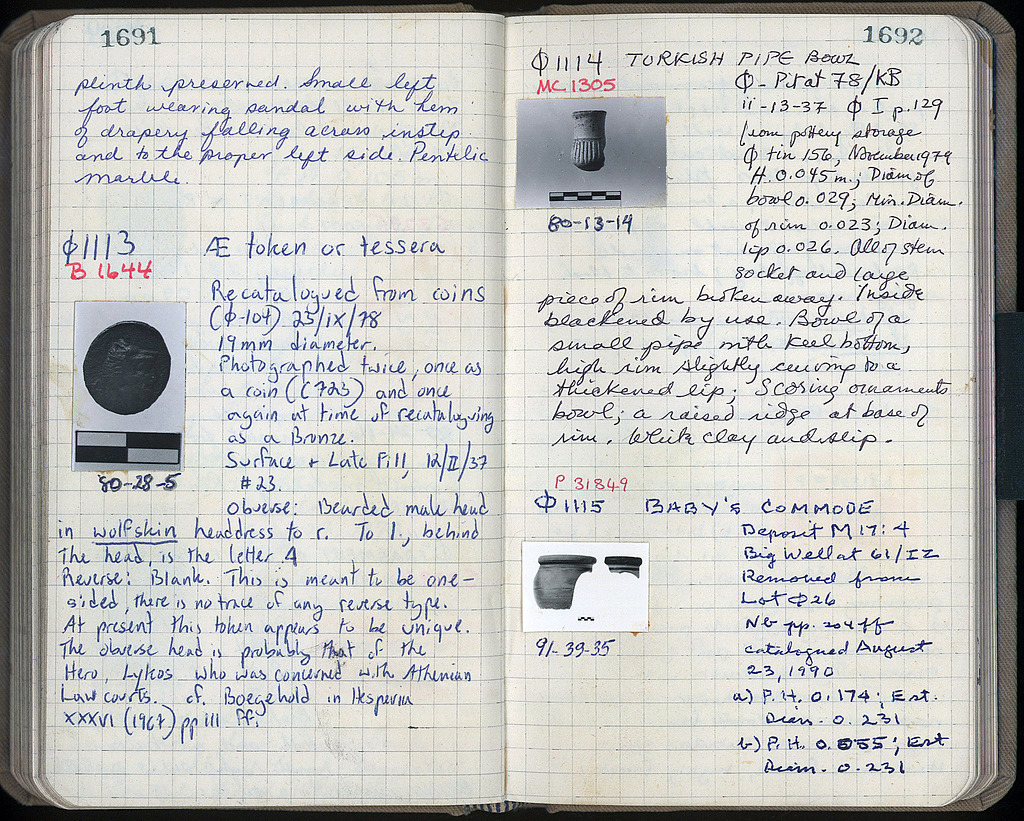 1691
plinth preserved. Small left
foot wearing sandal with hem
of drapery falling across instep
and to the proper left side. Pentelic
marble.
Φ1113 Æ token or tessera
B 1644
Recatalogued from coins
(Φ-104) 25/IX/78
19mm diameter.
Photographed twice, once as
a coin (C723) and once
again at time of recataloguing
as a Bronze.
Surface + Late Fill, 12/II/37
#23.
80-28-5
Obverse: Bearded male head
in wolfskin headdress to r. To l., behind
the head, is the letter A
Reverse: Blank. This is meant to be one-
sided, there is no trace of any reverse type.
At present this token appears to be unique.
The obverse head is probably that of the
Hero, Lykos who was concerned with Athenian
Law courts. cf. Boegehold in Hesperia
XXXVI (1967) pp 111 ff.
1692
Φ1114 TURKISH PIPE BOWL
MC 1305
Φ - Pit at 78/KB
ii-13-37 Φ I p.129
from pottery storage
Φ tin 156, November 1979
H. 0.045 m.; Diam of
bowl 0.029; Min. Diam.
of rim 0.023; Diam.
lip 0.026. All of stem
socket and large
80-13-14
piece of rim broken away. Inside
blackened by use. Bowl of a
small pipe with keel bottom,
high rim slightly curving to a
thickened lip; Scoring ornaments
bowl; a raised ridge at base of
rim. White clay and slip.
P 31849
Φ1115 BABY'S COMMODE
Deposit M 17:4
Big Well at 61/IZ
Removed from
Lot Φ26
Nb pp. 204 ff
catalogued August
23, 1990
a) P.H. 0.174; Est.
Diam. 0.231
b) P.H. 0.055; Est
Diam. 0.231
91-39-35